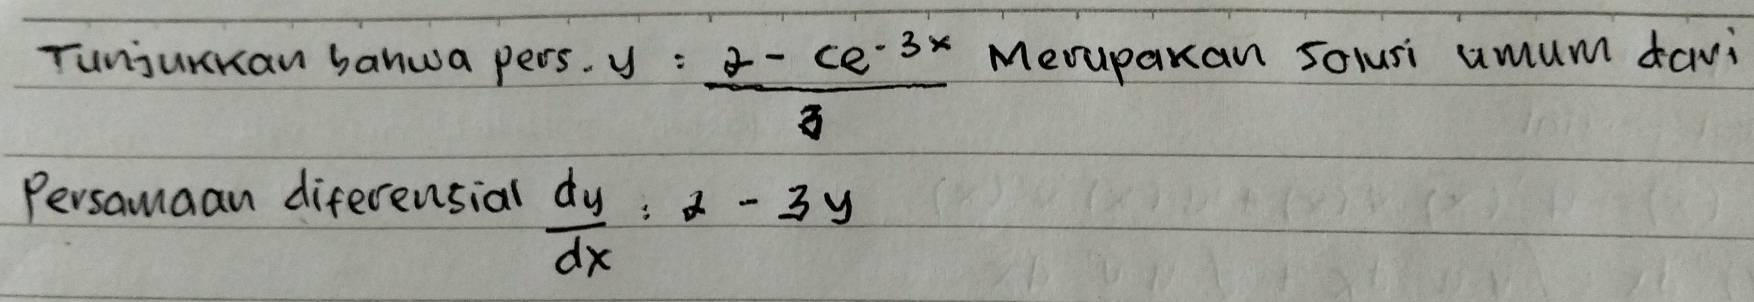 Tunjukkan bahwa pers. y = 2 - ce^-3x / 3 Merupakan Solusi umum dari
Persamaan diferensial dy/dx = 2 - 3y